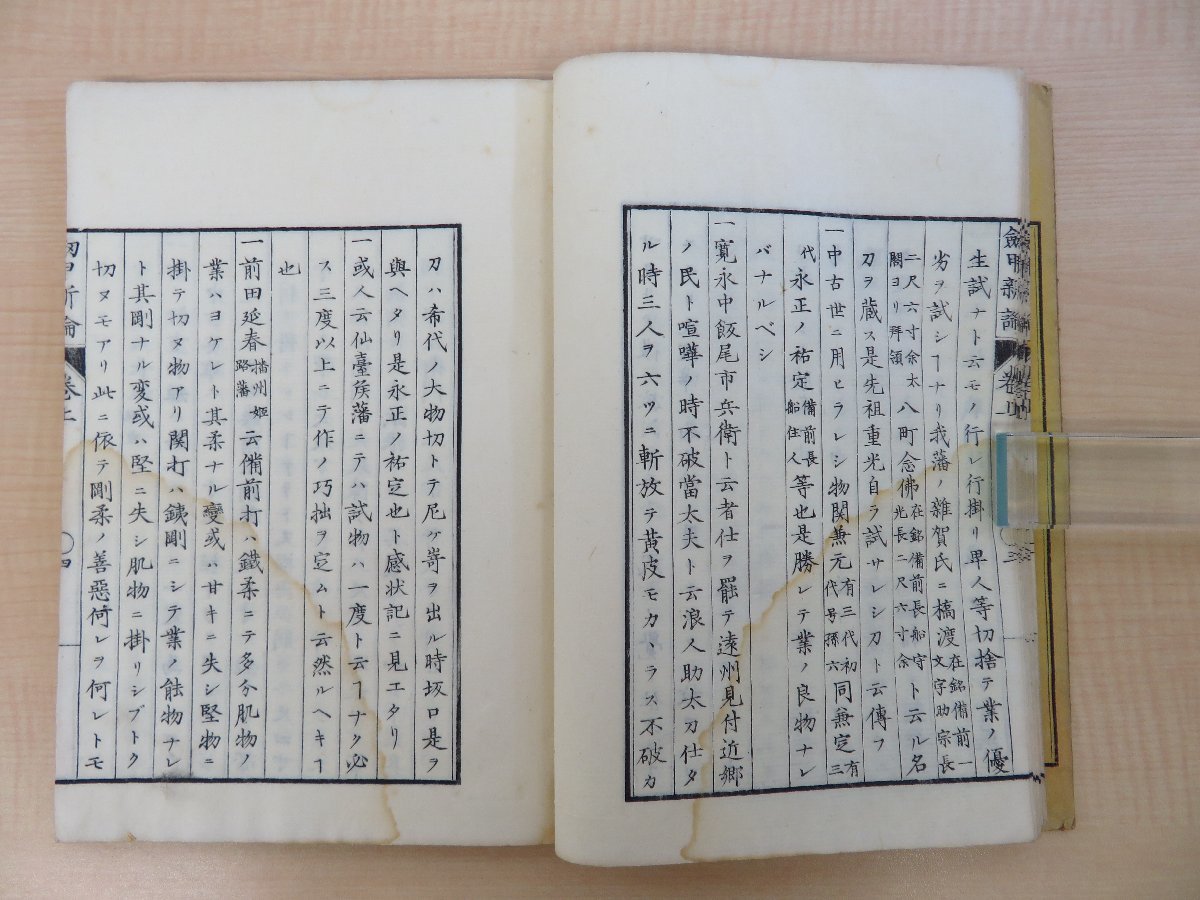 劔甲新論 卷上
生試ナト云モノ行レ行掛リ卑人等切捨テ業ノ優
劣ヲ試シヿナリ我藩ノ雜賀氏ニ橋渡在銘備前一文字助宗長
二尺六寸余太閤ヨリ拜領八町念佛在銘備前長船守光長二尺六寸余ト云ル名
刀ヲ蔵ス是先祖重光自ラ試サレシ刀ト云傳フ
一中古世ニ用ヒラレシ物関兼元有三代初代号孫六同兼定有三
代永正ノ祐定備前長船住人等也是勝レテ業ノ良物ナレ
バナルベシ
一寛永中飯尾市兵衛ト云者仕ヲ罷テ遠州見付近郷
ノ民ト喧嘩ノ時不破當太夫ト云浪人助太刀仕タ
ル時三人ヲ六ツニ斬放テ黄皮モカヽラス不破カ
刀ハ希代ノ大物切トテ尼ケ嵜ヲ出ル時坂口是ヲ
與ヘタリ是永正ノ祐定也ト感状記ニ見エタリ
一或人云仙臺矦藩ニテハ試物ハ一度ト云ヿナク必
ス三度以上ニテ作ノ巧拙ヲ定ムト云然ルヘキヿ
也
一前田延春播州姫路藩云備前打ハ鐵柔ニテ多分肌物ノ
業ハヨケレト其柔ナル變或ハ甘キニ失シ堅物ニ
掛テ切ヌ物アリ関打ハ銕剛ニシテ業ノ能物ナレ
ト其剛ナル変或ハ堅ニ失シ肌物ニ掛リシブトク
切ヌモアリ此ニ依テ剛柔ノ善惡何レヲ何レトモ
卷上
〇四